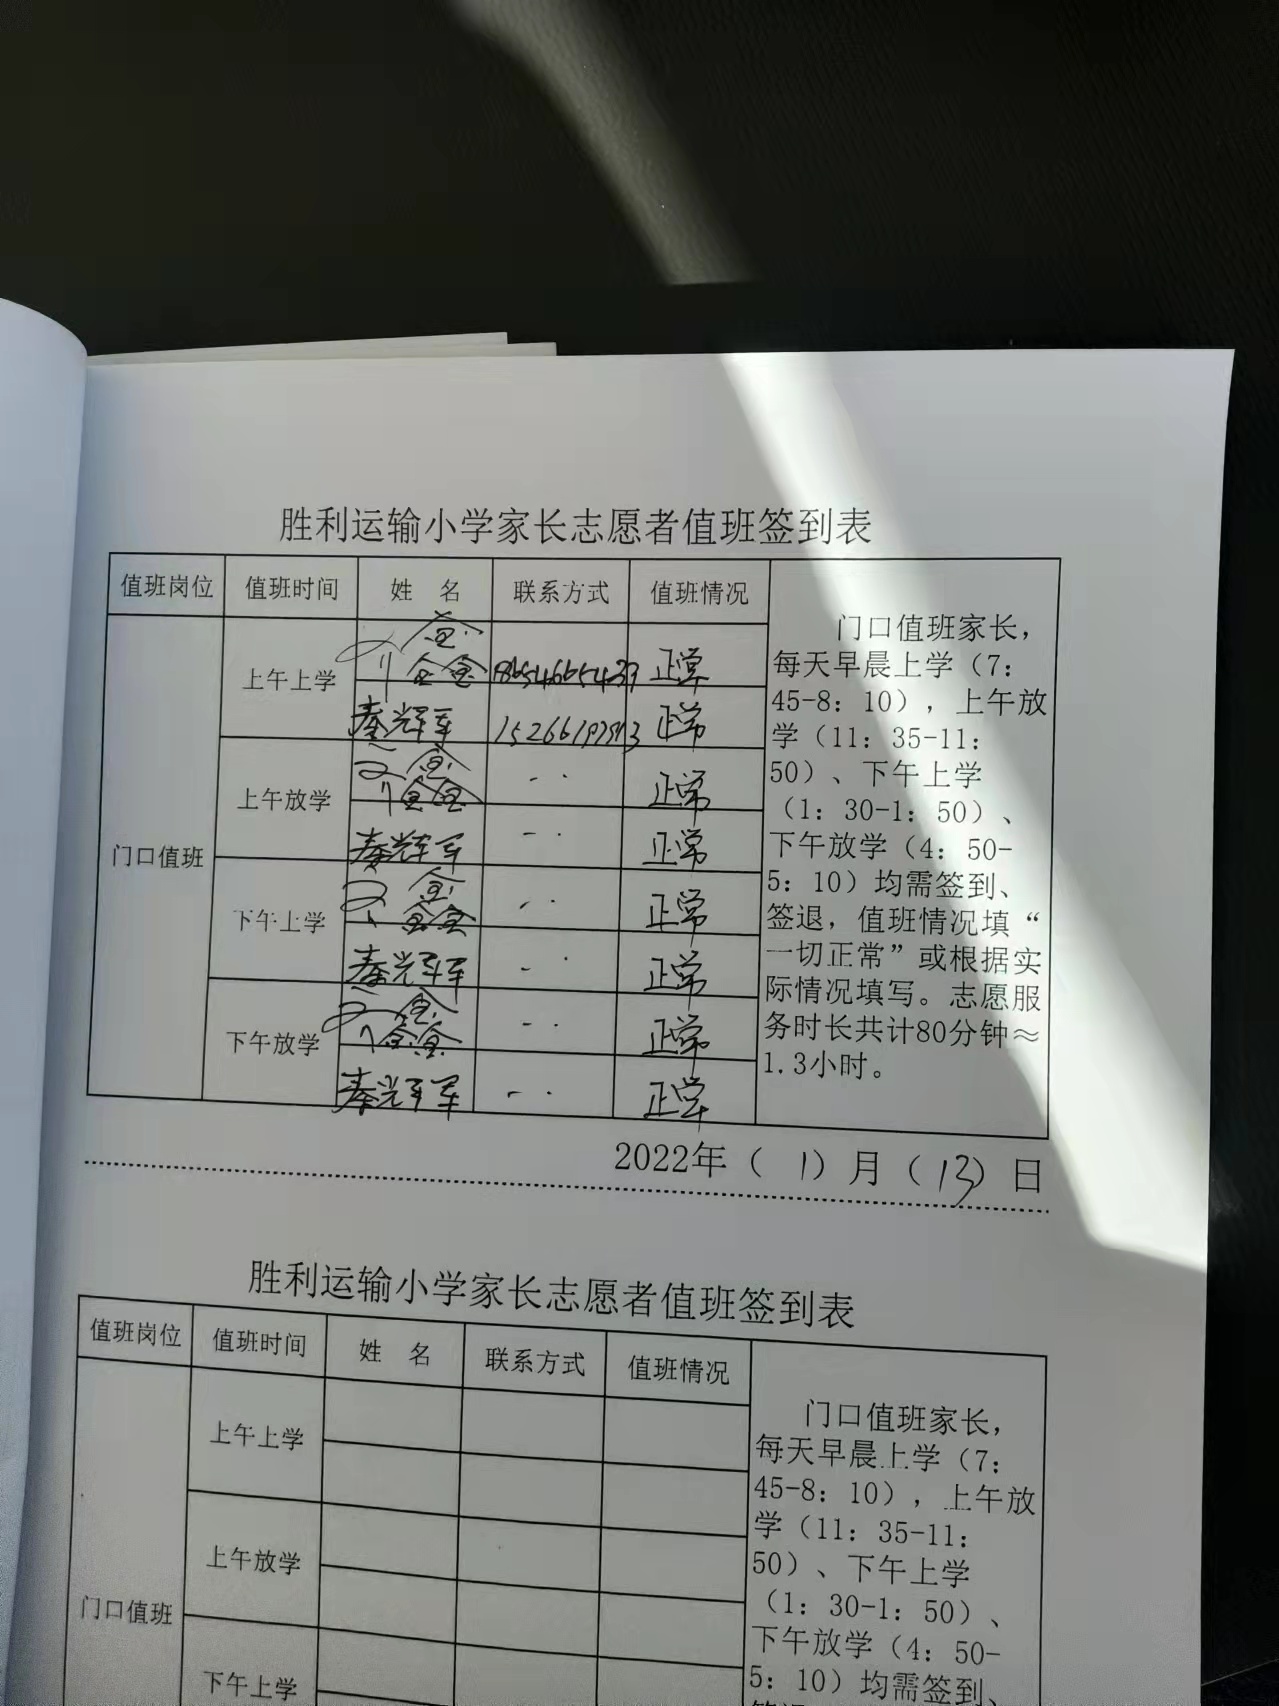 胜利运输小学家长志愿者值班签到表
值班岗位 值班时间 姓 名 联系方式 值班情况
门口值班
上午上学
正常
秦辉军 正常
上午放学
正常
秦辉军 正常
下午上学
正常
秦辉军 正常
下午放学
正常
秦辉军 正常
门口值班家长，
每天早晨上学（7：
45-8：10），上午放
学（11：35-11：
50）、下午上学
（1：30-1：50）、
下午放学（4：50-
5：10）均需签到、
签退，值班情况填“
一切正常”或根据实
际情况填写。志愿服
务时长共计80分钟≈
1.3小时。
2022年（1）月（13）日
胜利运输小学家长志愿者值班签到表
值班岗位 值班时间 姓 名 联系方式 值班情况
门口值班
上午上学
上午放学
下午上学
门口值班家长，
每天早晨上学（7：
45-8：10），上午放
学（11：35-11：
50）、下午上学
（1：30-1：50）、
下午放学（4：50-
5：10）均需签到、